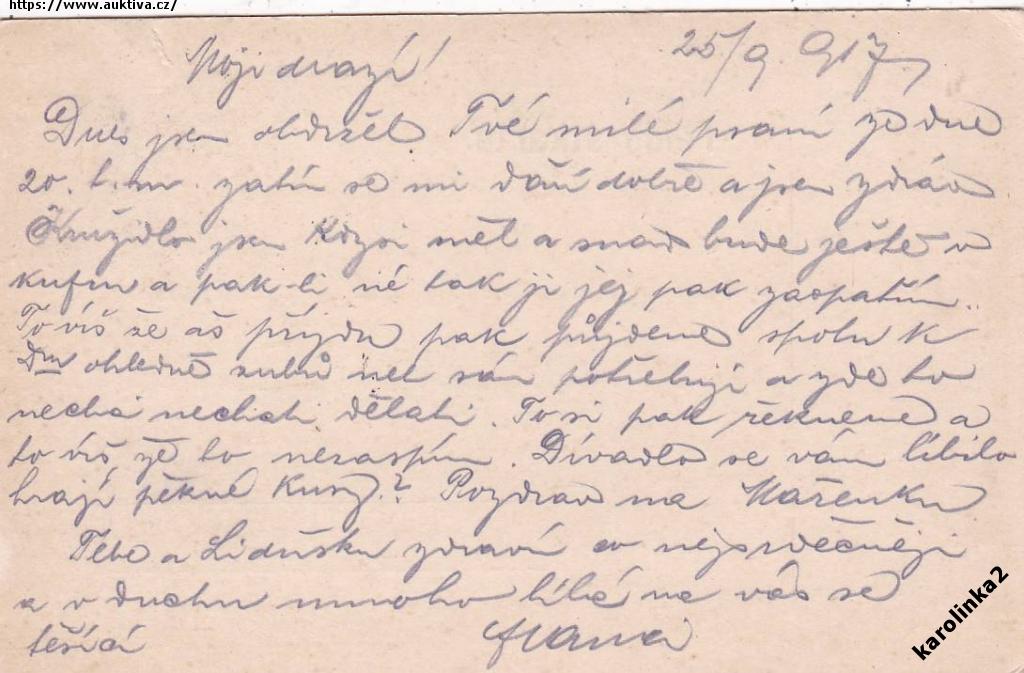 https://www.auktiva.cz/
25/9. 917
Moji drazí!
Dnes jsem obdržel Tvé milé psaní ze dne
20. t. m. zatím se mi daří dobře a jsem zdráv
Kružidlo jsem kdysi měl a snad bude ještě v
kufru a pak-li né tak ji jej pak zaopatřím.
To víš že až přijdu pak půjdeme spolu k
ohledně zubů neb sám potřebuji a zde to
nechci nechati dělati. To si pak řekneme a
to víš že to nezaspím. Divadlo se vám líbilo
hrají pěkné kusy? Pozdrav na Mařenku
Tebe a Lidušku zdraví co nejsrdečněji
a v duchu mnoho líbá na vás se
těšící
karolinka2